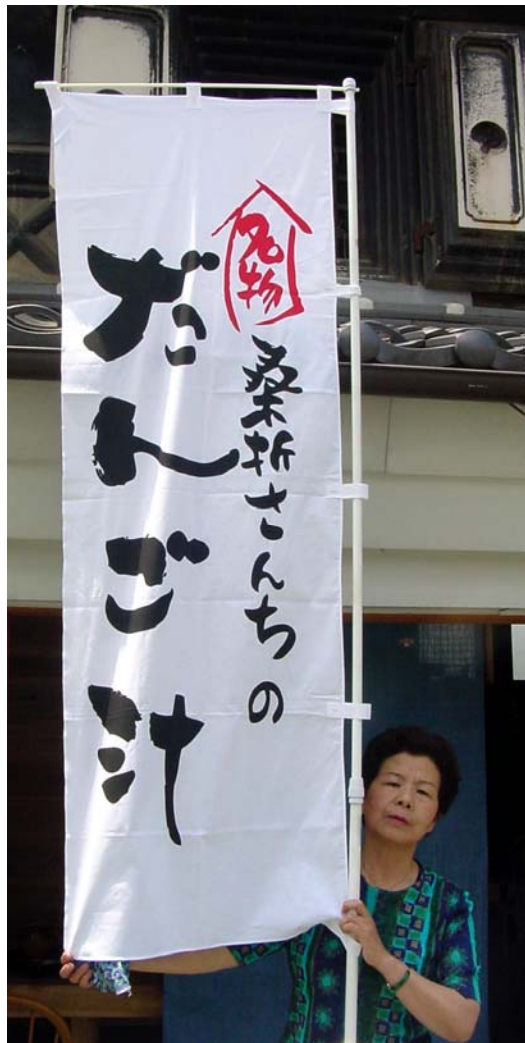 名物
桑折さんちの
だんご汁